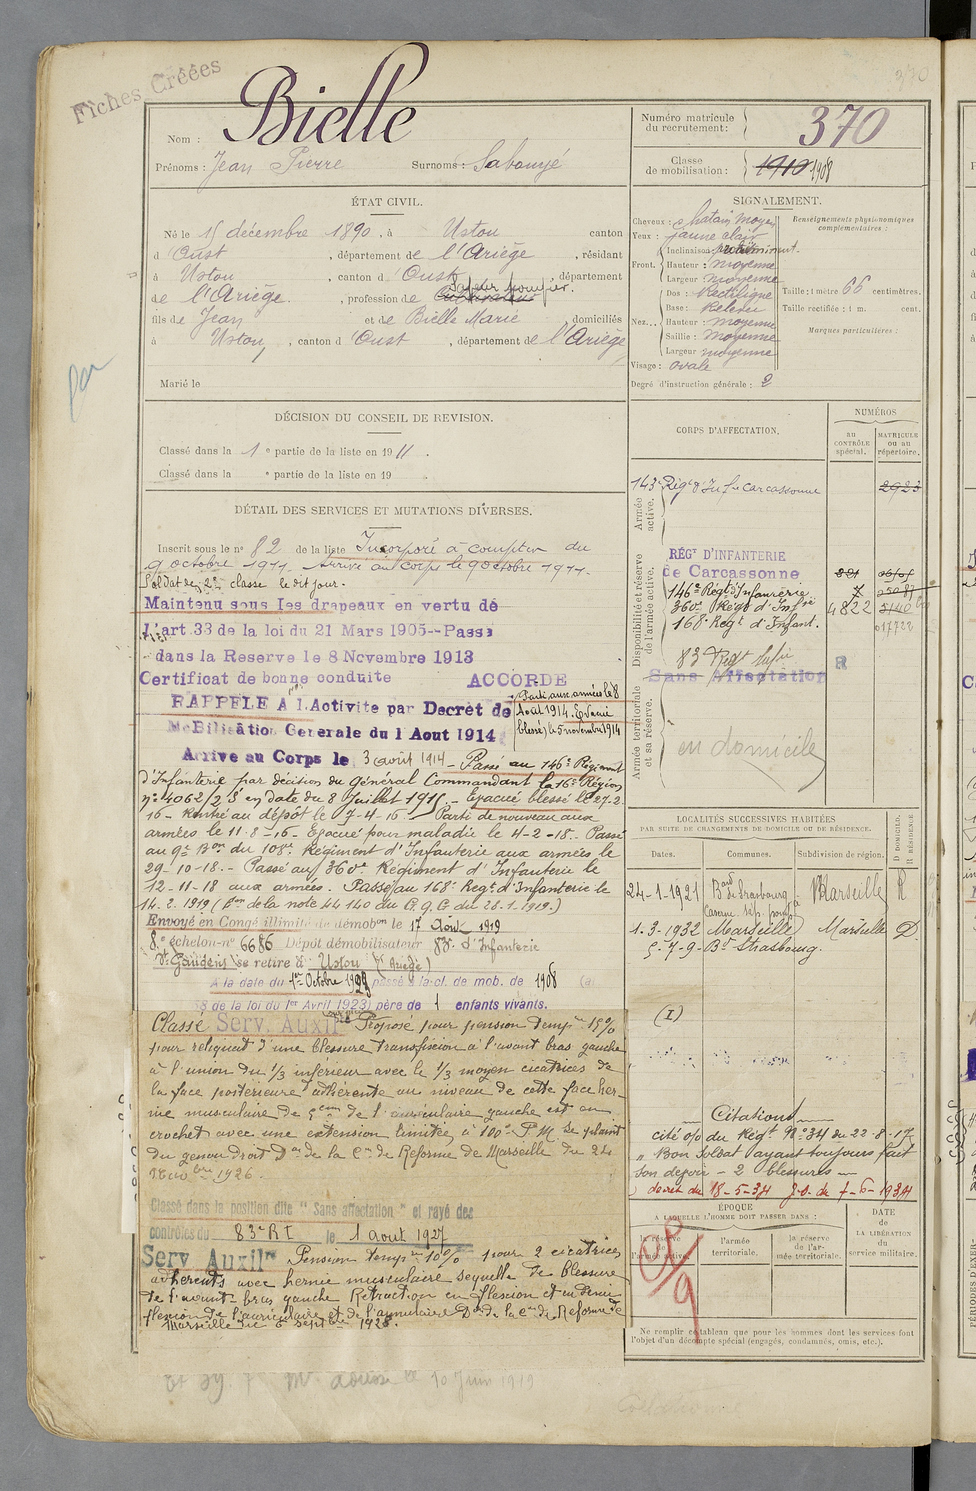 Fiches Créées
370
Bielle
Nom :
Prénoms : Jean Pierre Surnoms : Sabouyé
Numéro matricule du recrutement : 370
Classe de mobilisation : 1910 1908
ÉTAT CIVIL.
Né le 15 décembre 1890, à Ustou canton
d'Oust, département de l'Ariège, résidant
à Ustou, canton d'Oust, département
Sapeur pompier.
de l'Ariège, profession de Cultivateur
fils de Jean et de Bielle Marie, domiciliés
à Ustou, canton d'Oust, département de l'Ariège
Marié le
SIGNALEMENT.
Cheveux : chatain moyen
Yeux : jaune clair
Front. Inclinaison
Hauteur : moyenne
Largeur moyenne
Nez... Dos : Rectiligne
Base : Relevée
Hauteur : moyenne
Saillie : moyenne
Largeur moyenne
Visage : ovale
Degré d'instruction générale : 2
Renseignements physionomiques complémentaires :
Taille : 1 mètre 66 centimètres.
Taille rectifiée : 1 m. cent.
Marques particulières :
par
DÉCISION DU CONSEIL DE REVISION.
Classé dans la 1e partie de la liste en 1911.
Classé dans la e partie de la liste en 19 .
DÉTAIL DES SERVICES ET MUTATIONS DIVERSES.
Inscrit sous le n° 82 de la liste Incorporé à compter du
9 octobre 1911. Arrivé au corps le 9 octobre 1911.
Soldat de 2e classe le dit jour.
Maintenu sous les drapeaux en vertu de
l'art 33 de la loi du 21 Mars 1905--Passé
dans la Reserve le 8 Novembre 1913
Certificat de bonne conduite ACCORDE
RAPPELE A l'Activite par Decret de
Mobilisation Generale du 1 Aout 1914
Parti aux armées le 8
Août 1914. Evacué
blessé le 5 novembre 1914
Arrive au Corps le 3 août 1914 - Passé au 146e Régiment
d'Infanterie par décision du Général Commandant la 16e Région
n° 4062/2 S en date du 8 Juillet 1915. - Evacué blessé le 27-2-
16 - Rentré au dépôt le 7-4-16 - Parti de nouveau aux
armées le 11-8-16 - Evacué pour maladie le 4-2-18. - Passé
au 9e Bon du 108e Régiment d'Infanterie aux armées le
29-10-18. - Passé au 360e Régiment d'Infanterie le
12-11-18 aux armées. Passé au 168e Regt d'Infanterie le
14.2.1919 (Don de la note 44140 du G.Q.G du 28.1.1919.)
Envoyé en Congé illimité de démobon le 17 Août 1919
8e échelon-n° 6686 Dépôt démobilisateur 83e d'Infanterie
St Gaudens se retire à Ustou (Ariège)
A la date du 1er Octobre 1923 passé à la cl. de mob. de 1908 (a)
58 de la loi du 1er Avril 1923) père de 1 enfants vivants.
Classé Serv. Auxil Proposé pour pension tempre 15%
pour reliquat d'une blessure transfixion à l'avant bras gauche
à l'union du 1/3 inférieur avec le 1/3 moyen cicatrices de
la face postérieure adhérente au niveau de cette face her-
nie musculaire de 5cm de l'auriculaire gauche est en
crochet avec une extension limitée, à 100° P.M. Se plaint
du genou droit Don de la Con de Reforme de Marseille du 24
1926.
Classé dans la position dite "Sans affectation" et rayé des
contrôles du 83e RI le 1 aout 1927
Serv Auxilre Pension tempre 10% pour 2 cicatrices
adhérents avec hernie musculaire séquelle de blessure
de l'avant-bras gauche Retraction en flexion et en demie
flexion de l'auriculaire et de l'annulaire Don de la Con de Reforme de
Marseille du 6 septbre 1928.
10 Juin 1919
CORPS D'AFFECTATION.
NUMÉROS
AU CONTRÔLE spécial.
MATRICULE OU AU répertoire.
Armée active.
143e Régt d'Infie Carcassonne 2923
Disponibilité et réserve de l'armée active.
RÉGt D'INFANTERIE
de Carcassonne
146e Régt d'Infanterie
360e Régt d'Infie 4822
168e Regt d'Infant. 017722
83 Regt Infie
Sans Affectation
Armée territoriale et sa réserve.
en domicile
LOCALITÉS SUCCESSIVES HABITÉES
PAR SUITE DE CHANGEMENTS DE DOMICILE OU DE RÉSIDENCE.
Dates. Communes. Subdivision de région. D DOMICILE. R RÉSIDENCE
24-1-1921 Bard de Strasbourg Marseille R
Caserne sap. pomp.
1.3-1932 Marseille Marseille D
5-7-9-Bd Strasbourg.
(I)
Citations
cité o/o du Régt N° 34 du 22-8-17
" Bon Soldat ayant toujours fait
son devoir - 2 blessures -
décret du 18-5-34 J.O. du 7-6-1934
ÉPOQUE
A LAQUELLE L'HOMME DOIT PASSER DANS :
la réserve de l'armée active.
l'armée territoriale.
la réserve de l'armée territoriale.
DATE de LA LIBÉRATION du service militaire.
Ne remplir ce tableau que pour les hommes dont les services font
l'objet d'un décompte spécial (engagés, condamnés, omis, etc.).